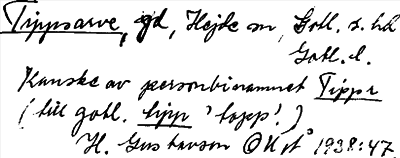 Tippsarve, gd, Hejde sn, Gotl. s. hd
Gotl. l.
Kanske av personbinamnet Tippr
(till gotl. tipp 'topp'.)
H. Gustavson 1938:47